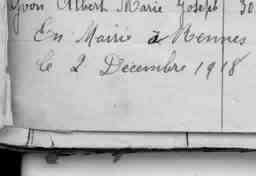 Yvon Albert Marie Joseph 30
En Mairie à Rennes
le 2 Décembre 1918